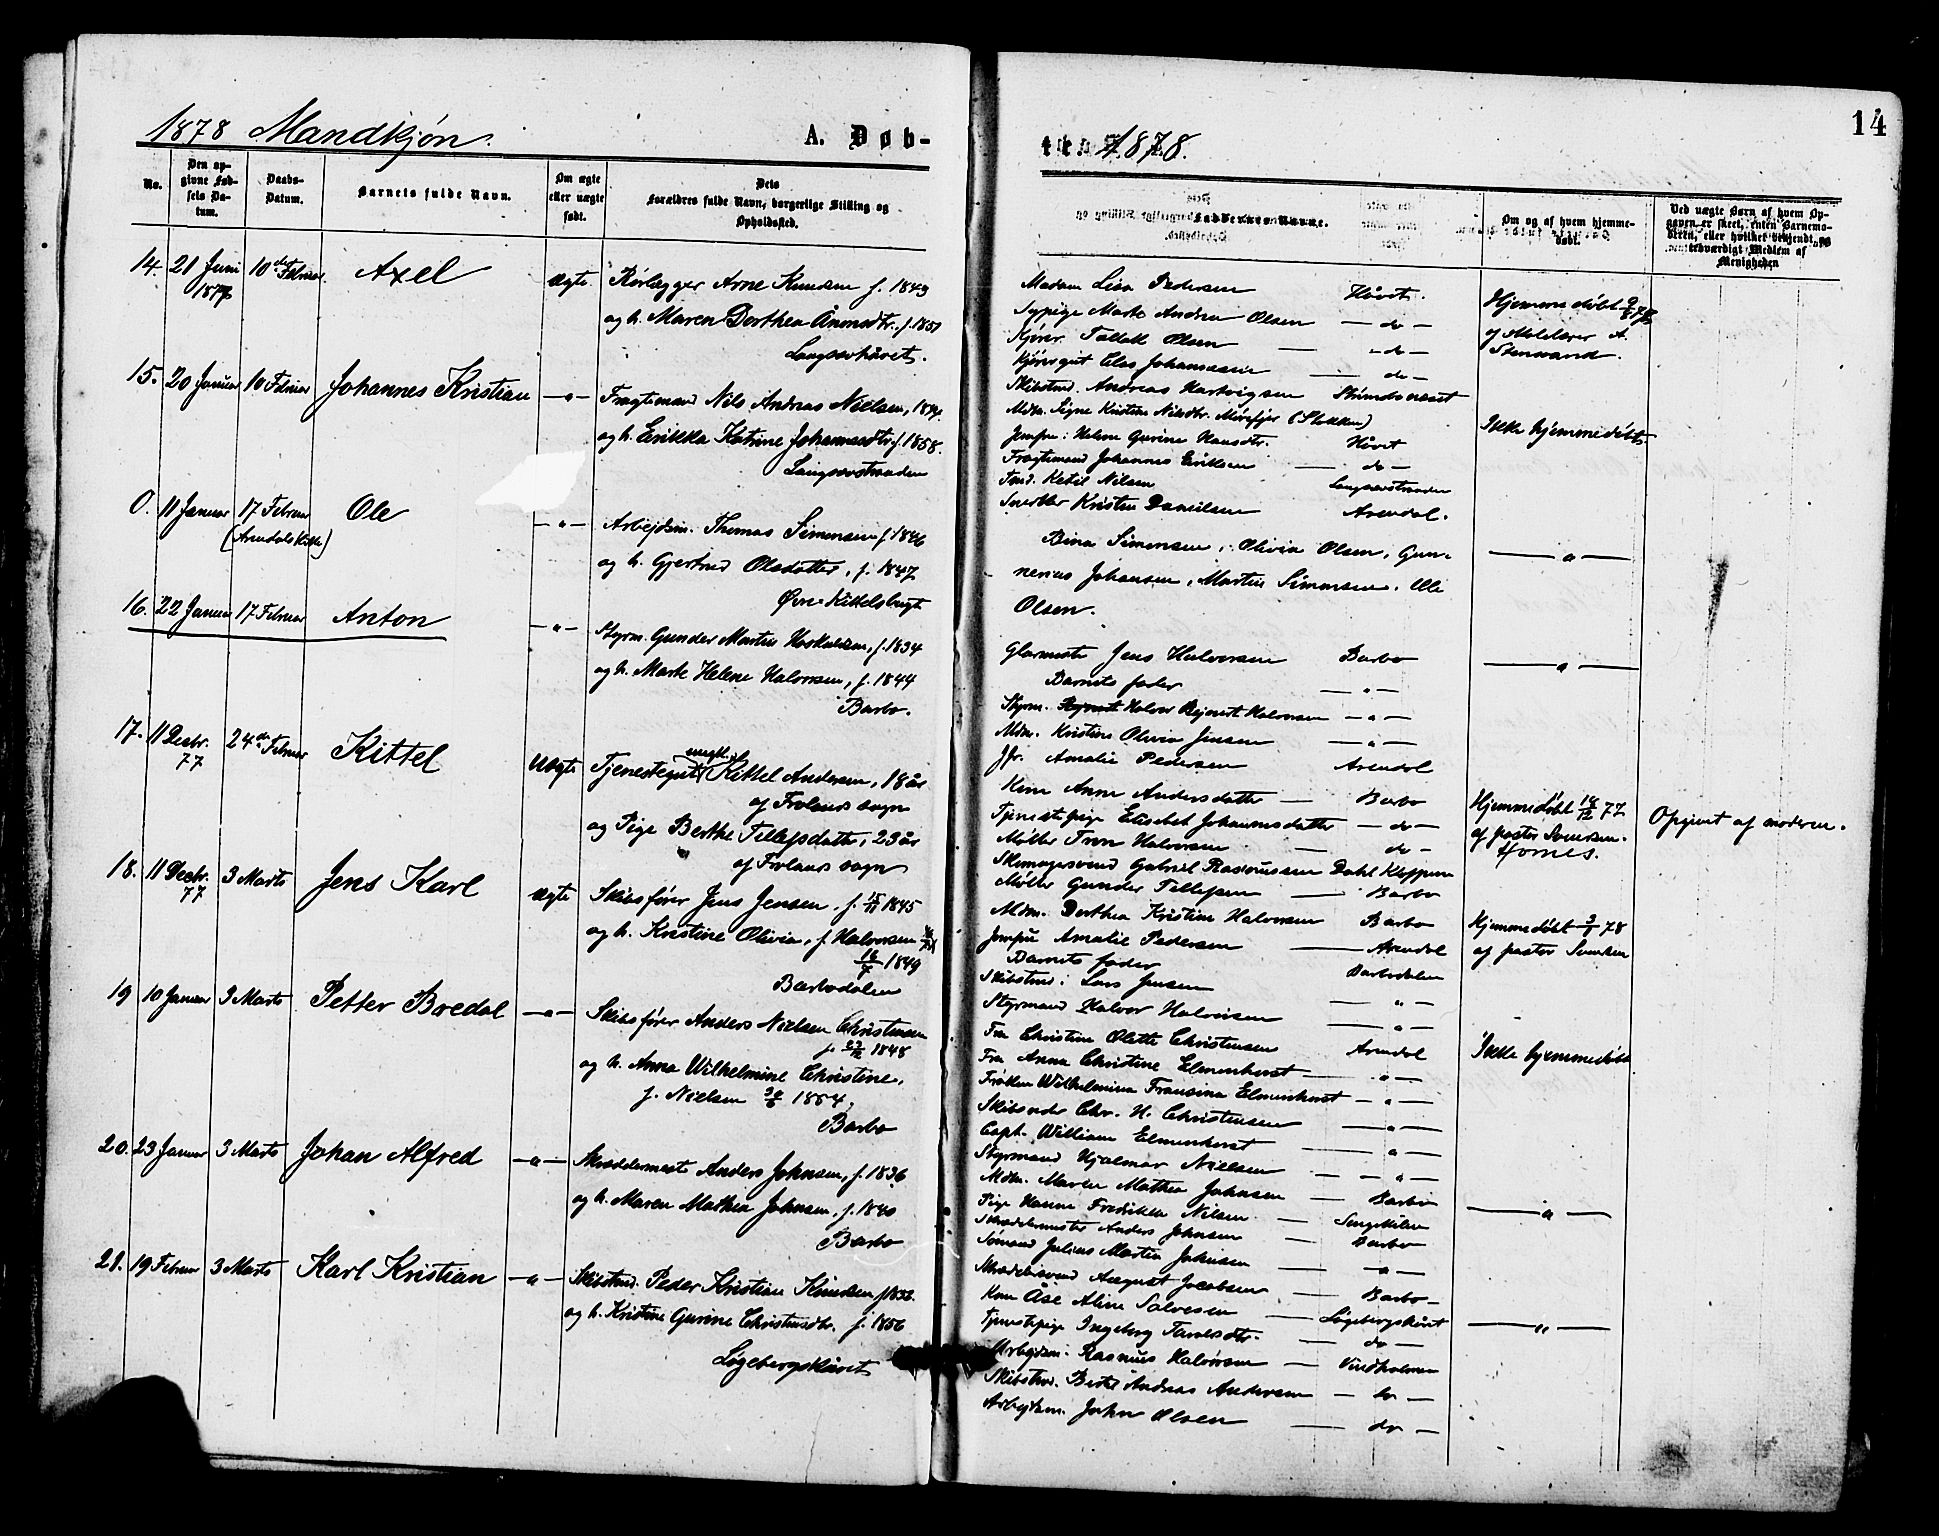 1878 Mandkjøn.
A. Døb-
No.
Den op-
givne Fød-
sels Da-
tum.
Daabs-
Datum.
Barnets fulde Navn.
Om ægte
eller uægte
født.
Dets
Forældres fulde Navn, borgerlige Stilling og
Opholdssted.
14. 21 Juni 10de Februar Axel ægte. Rørlægger Arne Knudsen f. 1849
og h. Maren Dorthea f. 1851
Langsæhåvet.
15. 20 Januar 10 Februar Johannes Kristian —"— Fragtemand Nils Andreas Nielsen,
og h. Erikka Katrine Johannesdtr. f. 1858.
Langsæstranden
0. 11 Januar 17 Februar Ole —"— Arbejdsm. Thomas Simonsen f. 1846
(Arendals Kirke) og h. Gjertrud Olsdatter, f. 1847
Kittelsbugt
16. 22 Januar 17 Februar Anton —"— Styrm. Gunder Martin f. 1834
og h. Marte Helene Halvorsen, f. 1844
Barbo.
17. 11 Decbr. 24de Februar Kittel Uægte Tjenestegut Kittel Andersen, 18 år
77 ungk.
af Frolands sogn
og Pige Berthe Tellefsdatter, 23 år
af Frolands sogn
18. 11 Decbr. 3 Marts Jens Karl ægte Skibsfører Jens Jensen, f. 15/11 1845
77
og h. Kristine Olivia, f. Halvorsen
16/7 1849
Barbodalen
19 10 Januar 3 Marts Petter Bredal —"— Skibsfører Anders Nielsen Christensen
1848
og h. Anna Wilhelmine Christine,
f. Nielsen 1854.
Barbo
20. 23 Januar 3 Marts Johan Alfred —"— Skræddermest. Anders Johnsen, f. 1836
og h. Maren Mathea Johnsen, f. 1840
Barbo
21. 19 Februar 3 Marts Karl Kristian —"— Skibstmd. Peder Kristian Knudsen
og h. Kristine Gurine Christensdtr. f. 1856
Løgebergskåret
14
ten 1878.
Faddernes Navne.
Om og af hvem hjemme-
døbt.
Ved uægte Børn af hvem Op-
gaven er skeet, enten Barnemo-
deren, eller hvilket bekjendt og
troværdigt Medlem af
Menigheden
Madam Lisa Pedersen Håvet.
Sypige Marte Andrea Olsen — do —
Kjører Tallak Olsen — do —
Kjøregut Elas Johannesen — do —
Skibstmd. Andreas Hartvigsen
Hjemmedøbt
Stenvand.
Mdm. Signe Kristine Nilsdtr. (Stokken)
Jomfru: Helene Gurine Hansdtr. Håvet
Fragtemand Johannes Eriksen — do —
Tmd. Ketil Nilsen Langsæstranden
Snedker Kristen Danielsen Arendal.
Ikke hjemmedøbt
Bina Simonsen, Olivia Olsen, Gun-
nerius Johansen, Martin Simonsen, Ole
Olsen.
—"—
Glarmester Jens Halvorsen Barbo
Barnets fader —"—
Styrm. Halvor Rejnert Halvorsen —"—
Mdm. Kristine Olivia Jensen —"—
Jfr. Amalie Pedersen Arendal
—"—
Kone Anne Andersdatter — Barbo
Tjenestepige Elisabet Johannesdatter — do —
Møller Halvorsen — do —
Skomagersvend Gabriel Rasmussen Dahl
Møller Gunder Tellefsen — Barbo
Hjemmedøbt 77
af pastor Svensen.
Hornes.
Opgivet af moderen.
Mdm. Dorthea Kristine Halvorsen Barbo
Jomfru Amalie Pedersen — Arendal
Barnets fader Barbodalen
Skibstmd: Lars Jensen —"—
Styrmand Halvor Halvorsen —"—
Hjemmedøbt 78
af pastor Svensen
Fru Christine Olette Christensen Arendal
Fru Anna Christine Elmenhorst —"—
Frøken Wilhelmina Fransina Elmenhorst —"—
Skibsreder Chr. H. Christensen —"—
Capt. William Elmenhorst —"—
Styrmand Hjalmar Nielsen —"—
Ikke hjemmedøbt
Mdm. Maren Mathea Johnsen — Barbo
Pige Hanne Fredrikke Nilsen — Songekilen
Skræddermester Anders Johnsen — Barbo
Sømand Julius Martin Johnsen —"—
Skræddersvend August Jacobsen — Barbo —
—"—
Kone Åse Aline Salvesen — Løgebergskåret
Tjenestepige Ingeborg — do —
Arbejdsm: Rasmus Halvorsen — Vindholmen
Skibstmd. Bertel Andreas Andersen — do —
Arbejdsm. John Olsen — do —
—"—